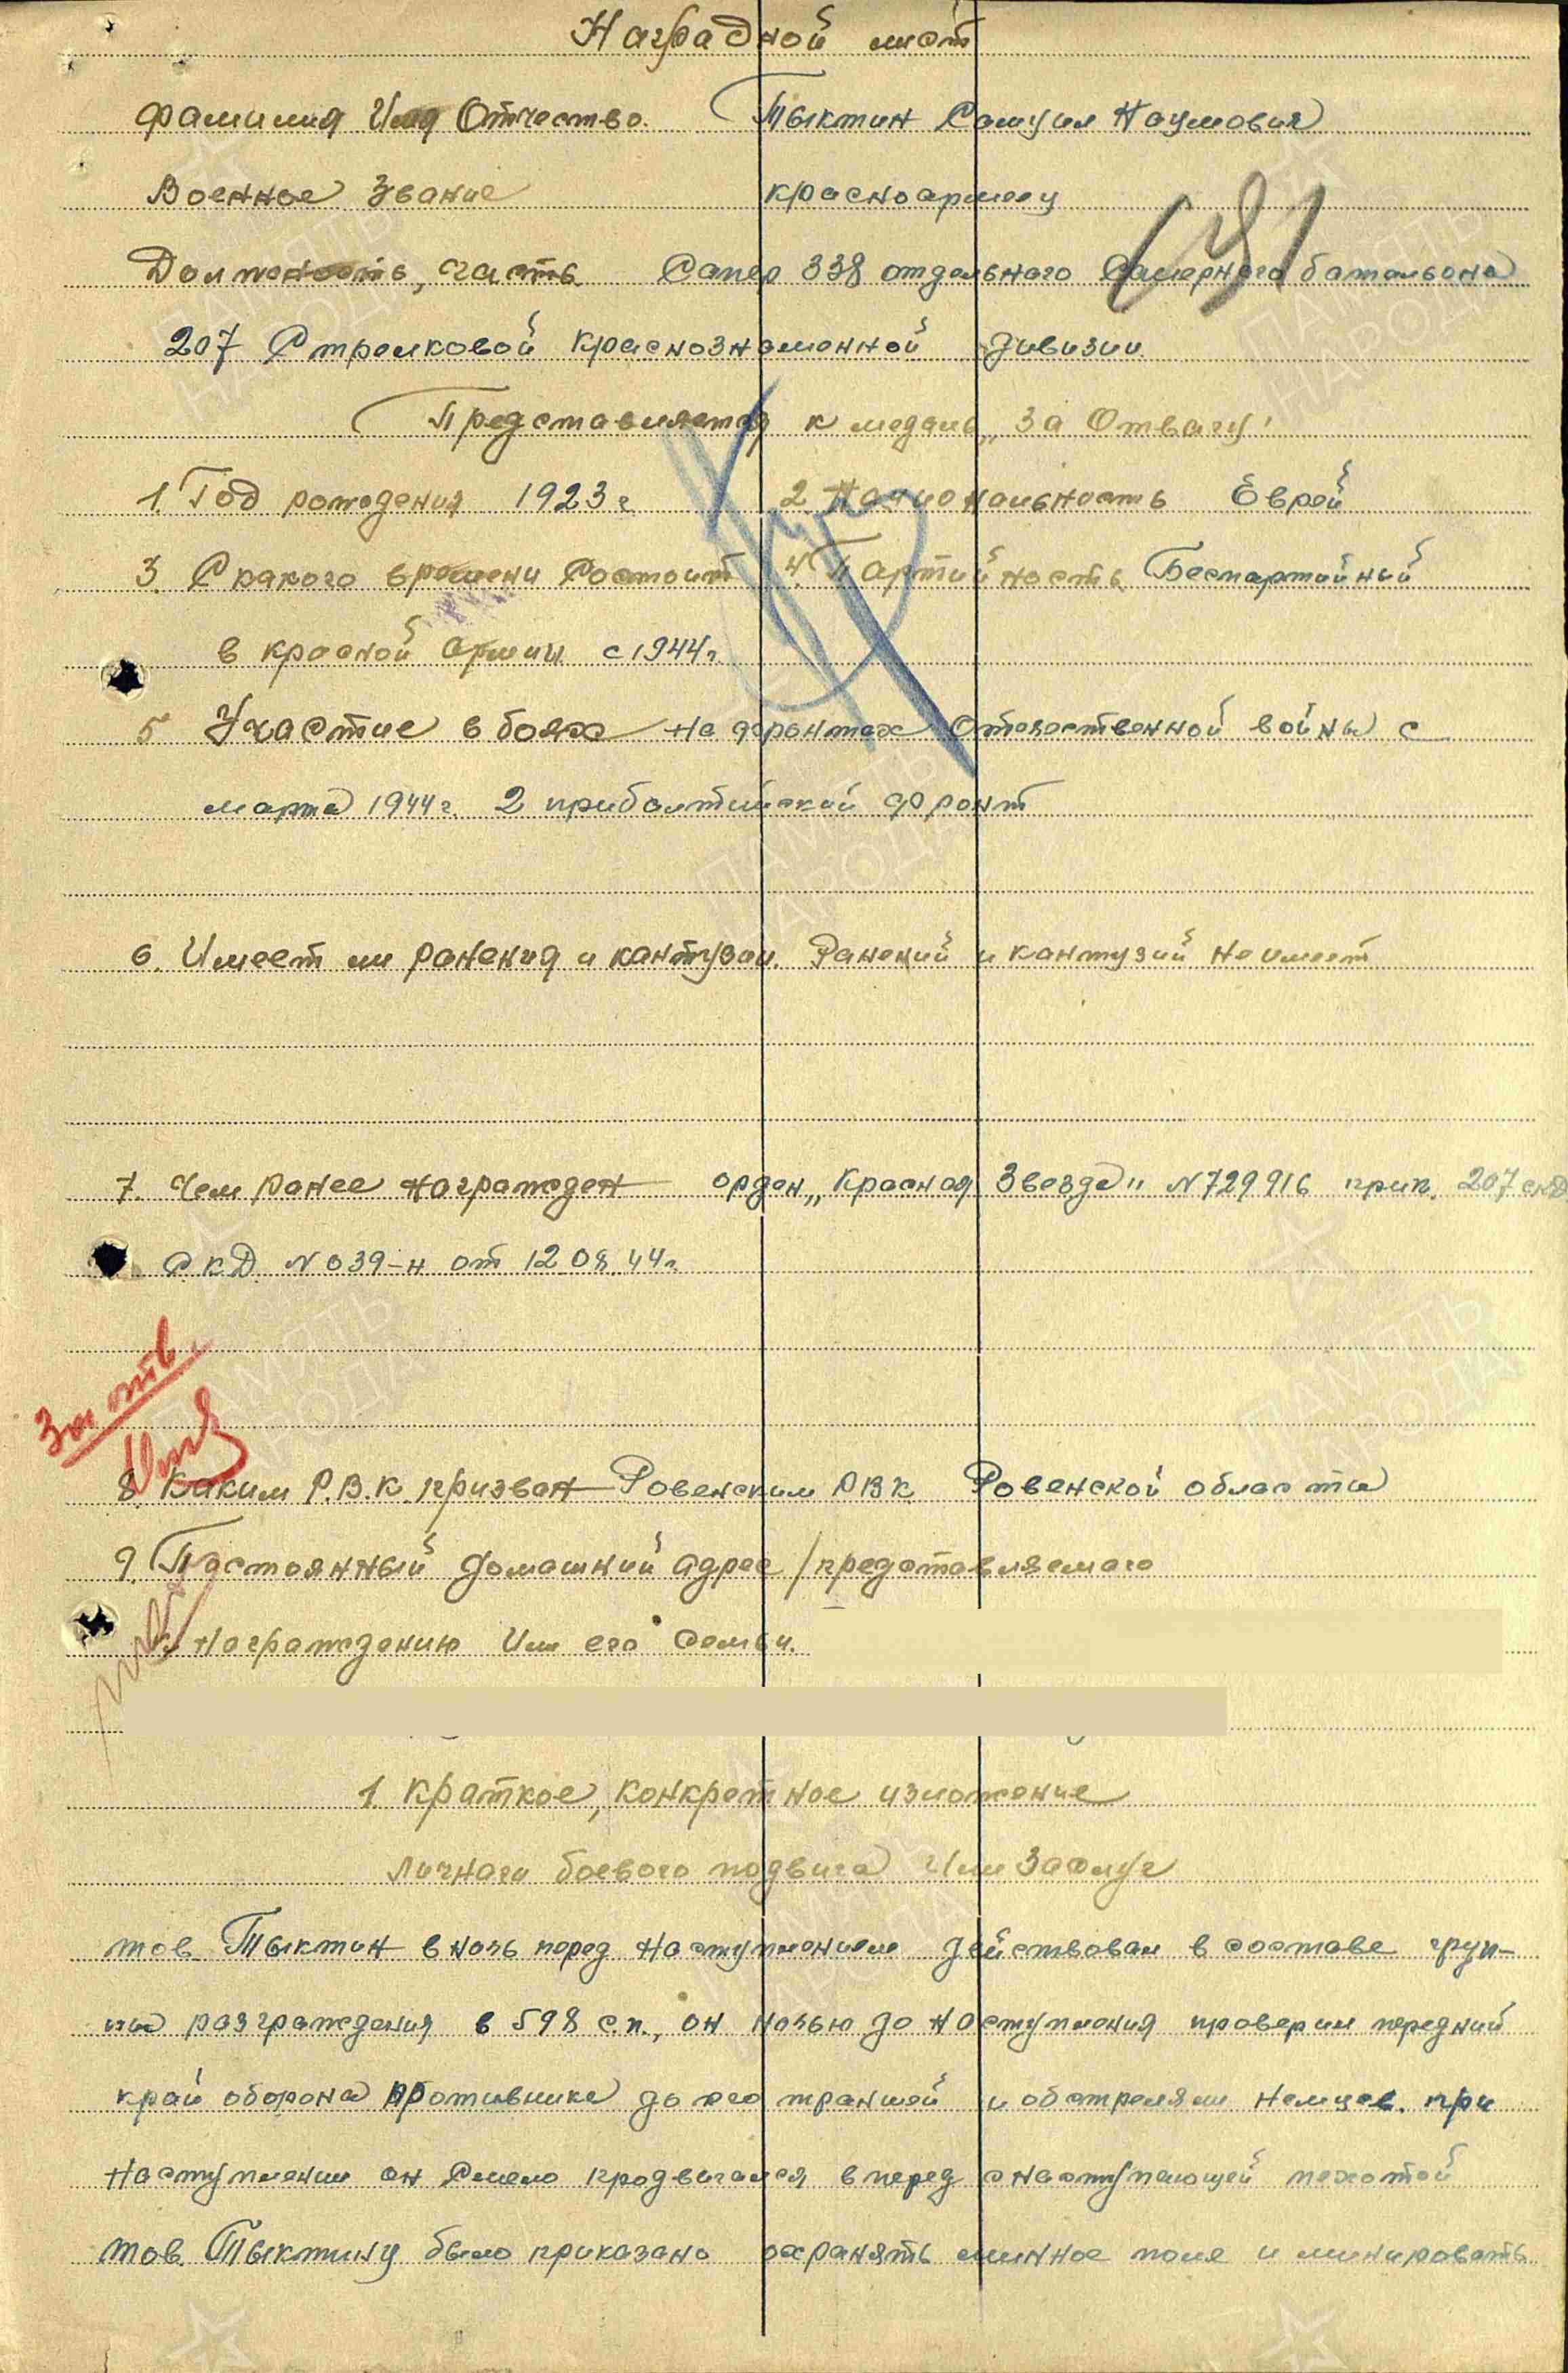 Наградной лист
Фамилия Имя Отчество. Тыктин Самуил Наумович
Военное Звание красноармеец
Должность, часть Сапер 338 отдельного Саперного батальона
207 Стрелковой Краснознаменной дивизии
Представляется к медали „За Отвагу"
1. Год рождения 1923 г. 2. Национальность Еврей
3. С какого времени состоит 4. Партийность Беспартийный
в красной армии с 1944 г.
5 Участие в боях на фронтах Отечественной войны с
марта 1944 г. 2 прибалтийский фронт
6. Имеет ли ранения и кантузии. Ранений и кантузий не имеет
7. Чем ранее награжден орден „Красная Звезда" № 729916 прик. 207 скд
С.К.Д. № 039-н от 12.08.44 г.
За отв.
8. Каким Р.В.К. призван Ровенским РВК Ровенской области
9. Постоянный домашний адрес /представляемого
к награждению или его семьи.
1. Краткое, конкретное изложение
личнаго боевого подвига или заслуг
тов. Тыктин в ночь перед наступлением действовал в составе груп-
пы разграждения в 598 с.п., он ночью до наступления проверил передний
край обороны противника до его траншей и обстреляли немцев. при
наступлении он смело продвигался вперед с наступающей пехотой
тов. Тыктину было приказано охранять минное поле и минировать